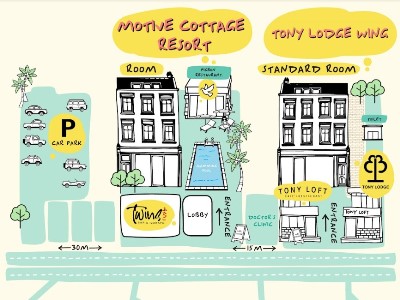 MOTIVE COTTAGE
RESORT
TONY LODGE WING
ROOM
STANDARD ROOM
RESTAURANT
P
CAR PARK
TONY LODGE
TONY LOFT
Twins
LOBBY
ENTRANCE
DOCTOR'S
CLINIC
ENTRANCE
TONY LOFT
30M
15M